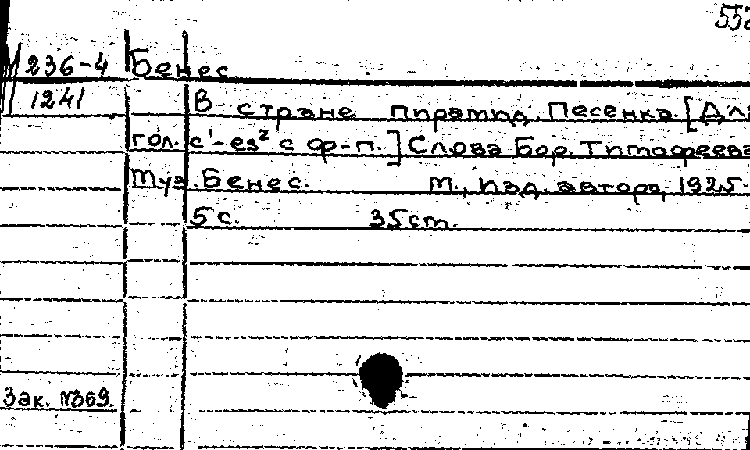 552
236-4 Бенес
1241 В стране пирамид. Песенка. [Для
гол. c¹-es² с ф-п.] Слова Бор. Тимофеева
Муз. Бенес. М., изд. автора, 1925.
5 с. 35 см.
Зак. №369.